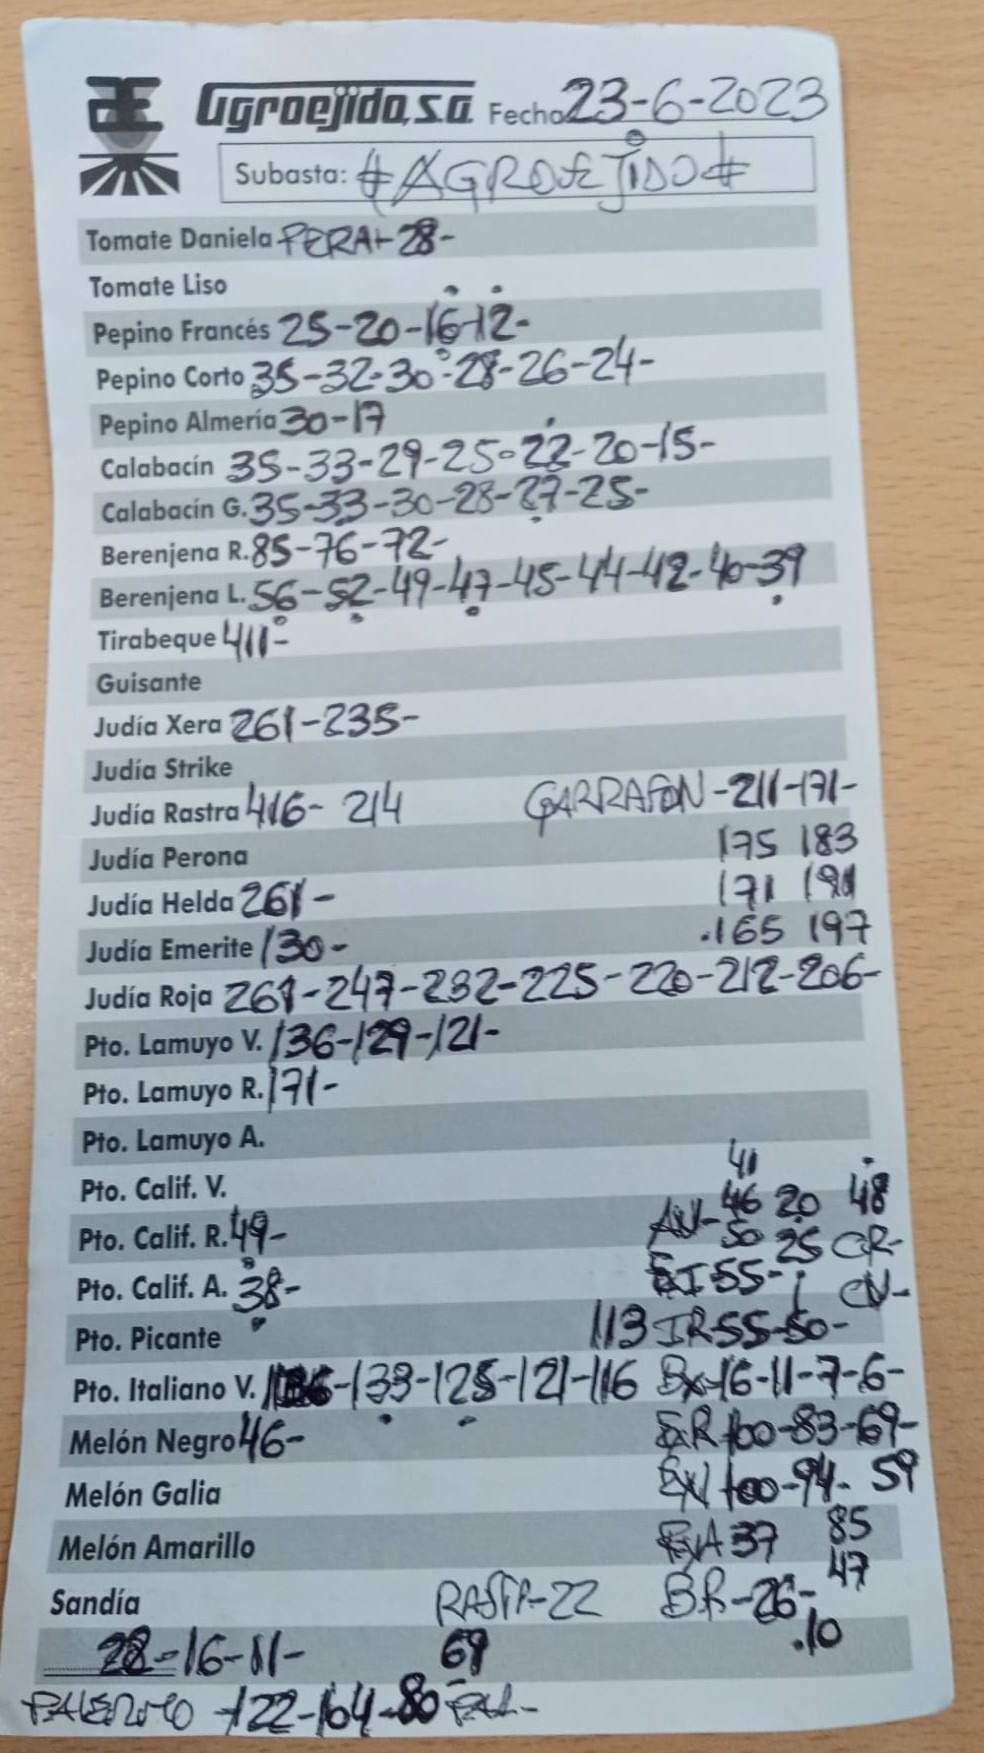 Agroejido, s.a. Fecha 23-6-2023
Subasta: #AGROEJIDO#
Tomate Daniela PERA-28-
Tomate Liso
Pepino Francés 25-20-16-12-
Pepino Corto 35-32-30-28-26-24-
Pepino Almería 30-17
Calabacín 35-33-29-25-22-20-15-
Calabacín G. 35-33-30-28-27-25-
Berenjena R. 85-76-72-
Berenjena L. 56-52-49-47-45-44-42-40-39
Tirabeque 411-
Guisante
Judía Xera 261-235-
Judía Strike
Judía Rastra 416- 214 GARRAFON-211-171-
Judía Perona 175 183
Judía Helda 261- 171 191
Judía Emerite 130- .165 197
Judía Roja 261-247-232-225-220-212-206-
Pto. Lamuyo V. 136-129-121-
Pto. Lamuyo R. 171-
Pto. Lamuyo A.
41
Pto. Calif. V. 46 20 48
Pto. Calif. R. 49- AV- 50 25 CR-
Pto. Calif. A. 38- 55- CV-
Pto. Picante 113 IR 55-50-
Pto. Italiano V. -133-125-121-116 Bx-16-11-7-6-
Melón Negro 46- 100-83-69-
Melón Galia 100-94- 59
Melón Amarillo 37 85
47
Sandía RASTR-22 BR-26-
28-16-11- 69 .10
PALERMO -122-104-80 PAL-